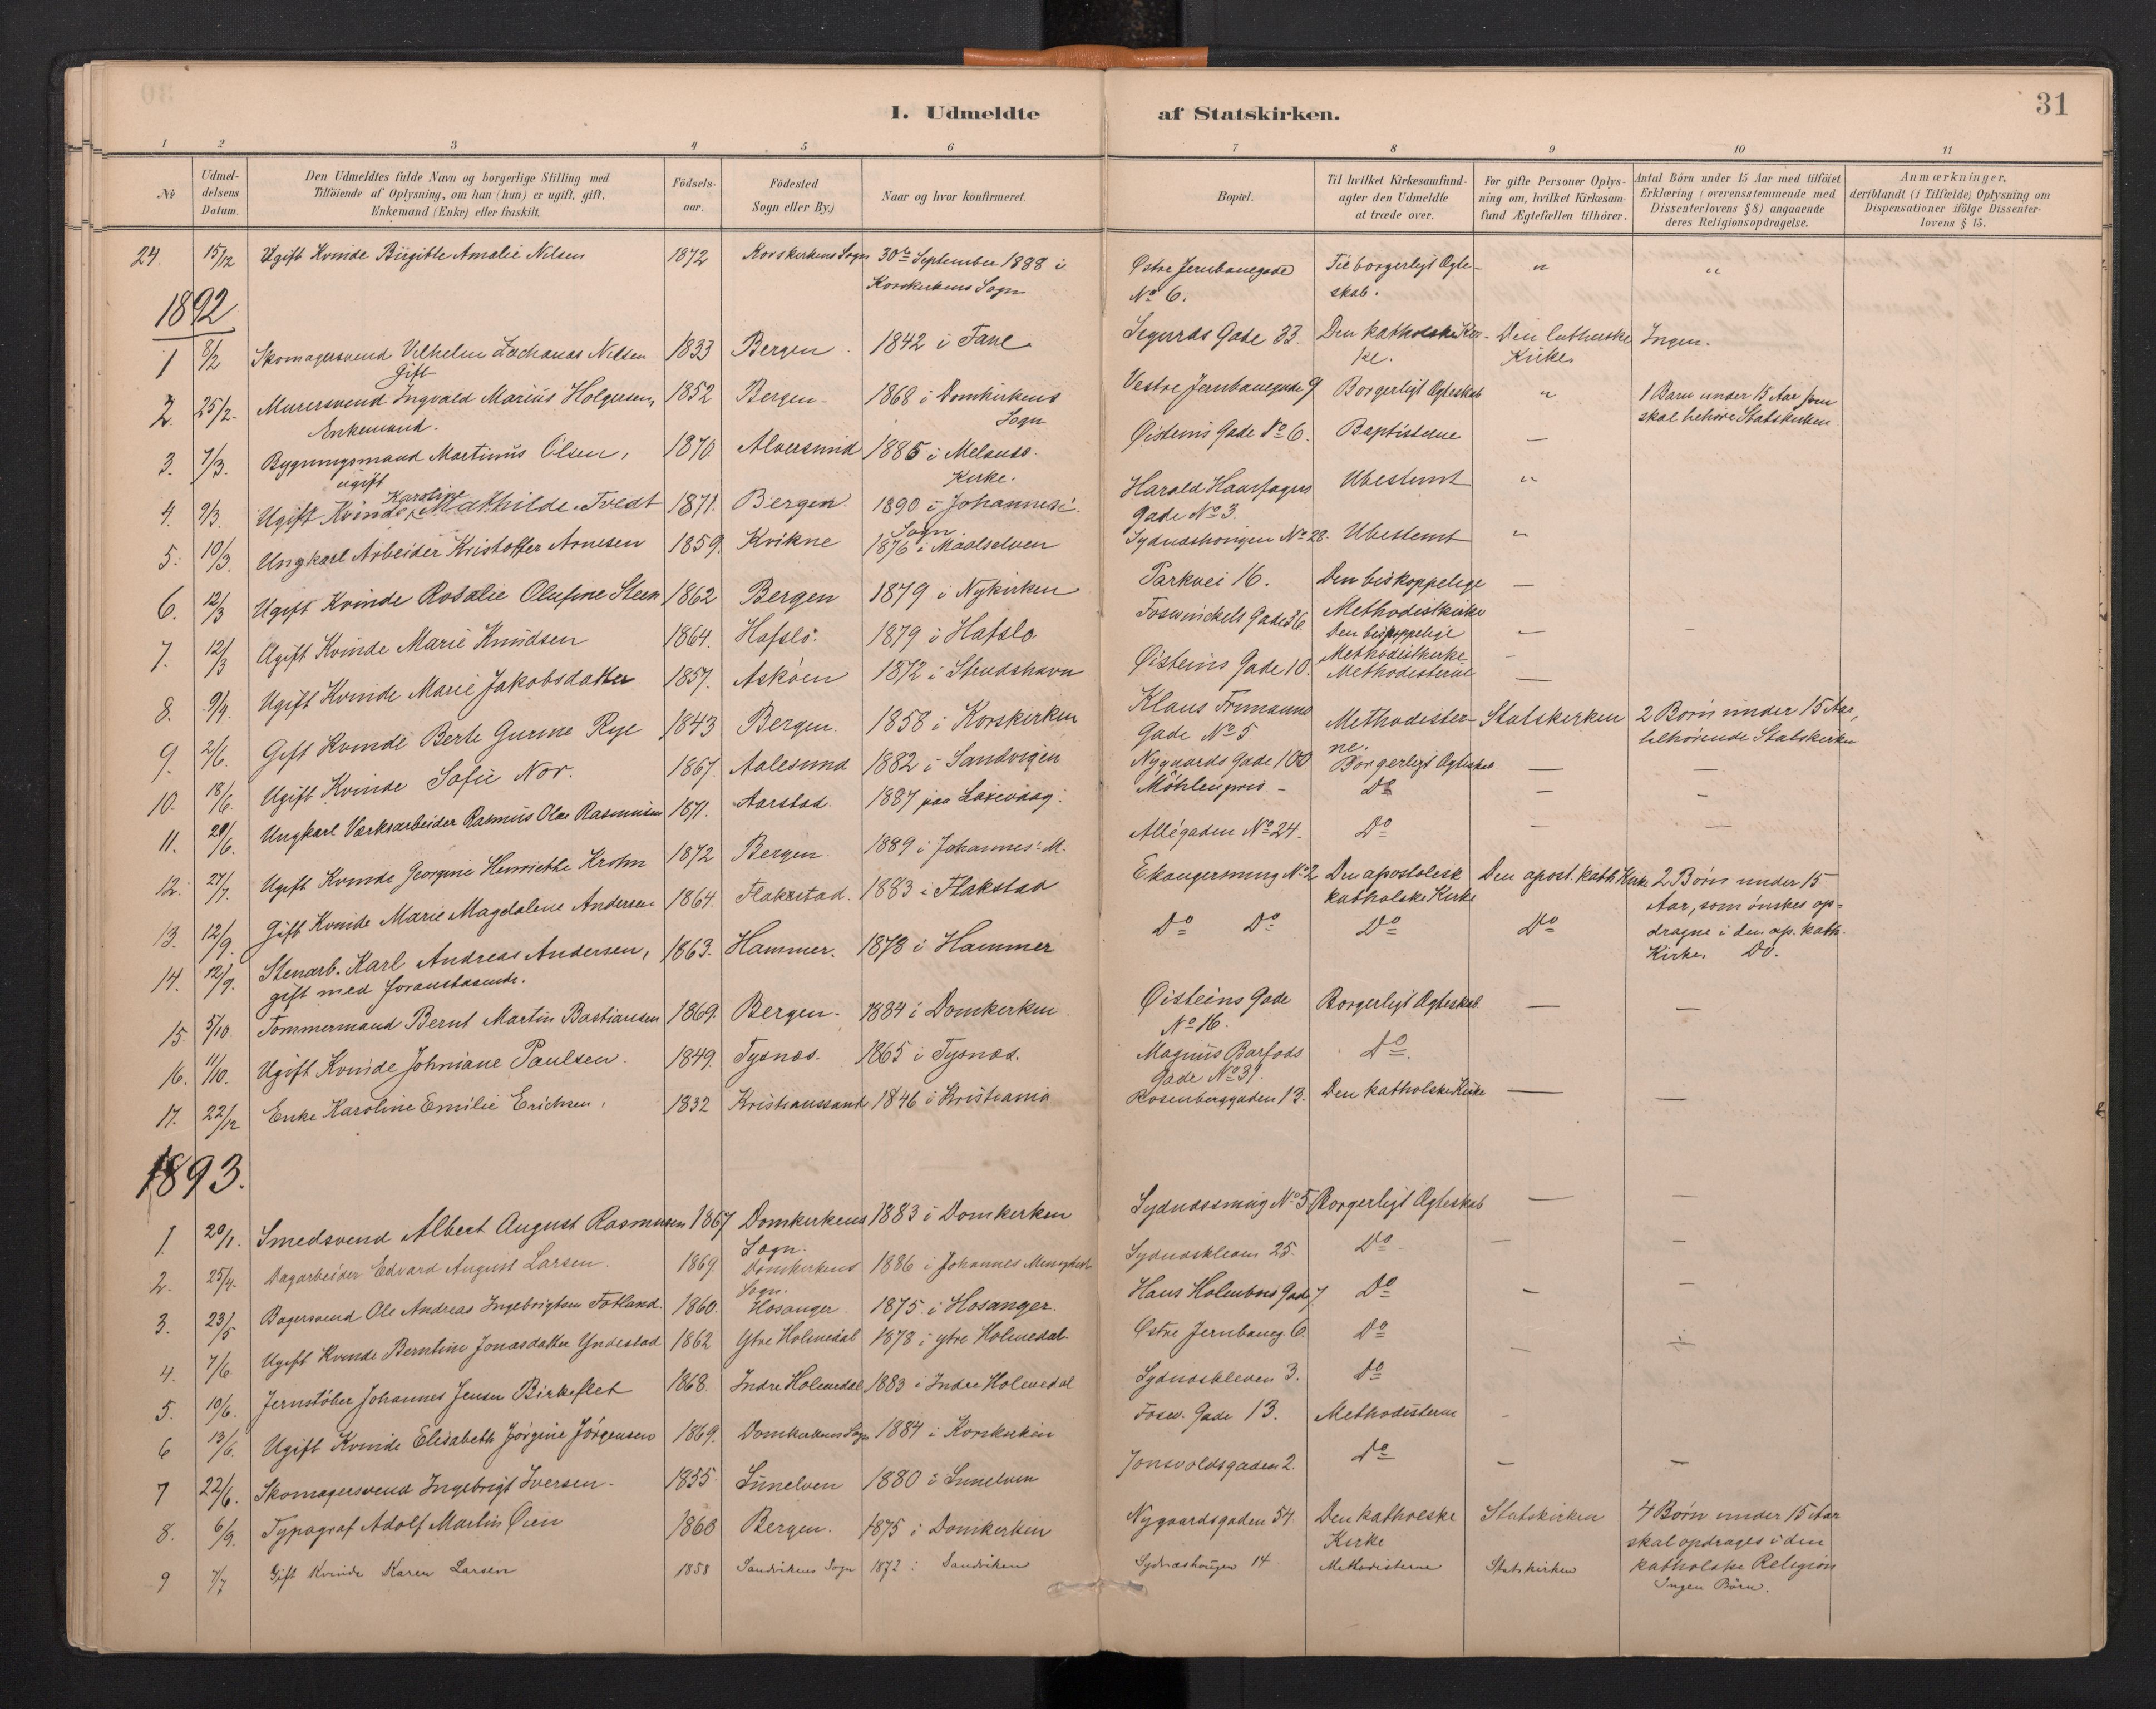 31
I. Udmeldte af Statskirken.
1 2 3 4 5 6 7 8 9 10 11
No
Udmeldelsens Datum.
Den Udmeldtes fulde Navn og borgerlige Stilling med
Tilföiende af Oplysning, om han (hun) er ugift, gift,
Enkemand (Enke) eller fraskilt.
Födselsaar.
Födested
Sogn eller By.)
Naar og hvor konfirmeret.
Bopæl.
Til hvilket Kirkesamfund-
agter den Udmeldte
at træde over.
For gifte Personer Oplys-
ning om, hvilket Kirkesam-
fund Ægtefællen tilhörer.
Antal Börn under 15 Aar med tilföiet
Erklæring (overensstemmende med
Dissenterlovens § 8) angaaende
deres Religionsopdragelse.
Anmærkninger,
deriblandt (i Tilfælde) Oplysning om
Dispensationer ifölge Dissenter-
lovens § 15.
24. 15/12 Ugift Kvinde Birgitte Amalie Nilsen 1872 Korskirkens Sogn 30te September 1888 i Østre Jernbanegade Til borgerligt Ægte- " "
Korskirkens Sogn No 6. skab.
1892
1 8/2 Skomagersvend Vilhelm Zacharias Nilsen 1833 Bergen 1842 i Fane Sigurds Gade 33. Den katholske Kir- Den lutherske Ingen.
Gift ke. Kirke
2. 25/2. Murersvend Ingvald Marius Holgersen, 1852 Bergen 1868 i Domkirkens Vestre Jernbanegade 9 Borgerligt Ægteskab " 1 Barn under 15 Aar som
Enkemand. Sogn skal behøre Statskirken
3. 7/3. Bygningsmand Martinus Olsen, 1870 Alversund 1885 i Melands Øisteins Gade No 6. Baptisterne —
ugift Kirke.
4. 9/3. Ugift Kvinde Karoline Mathilde Tvedt 1871. Bergen 1890 i Johannes Harald Haarfagers Ubestemt "
Sogn Gade No 3.
5. 10/3. Ungkarl Arbeider Kristoffer Arnesen 1859. Kvikne 1876 i Maalselven Sydneshougen No 28. Ubestemt "
6. 12/3 Ugift Kvinde Rosalie Olufine Steen 1862 Bergen 1879 i Nykirken Parkvei 16. Den biskoppelige —
Methodistkirke
7. 12/3 Ugift Kvinde Marie Knudsen 1864. Hafslo. 1879 i Hafslo Foswinckels Gade 16 Den biskoppelige — —
Methodistkirke
8. 9/4. Ugift Kvinde Marie Jakobsdatter 1857. Askøen 1872 i Strudshavn Øisteins Gade 10. Methodisterne —
9. 2/6. Gift Kvinde Berte Gurine Rye 1843 Bergen 1858 i Korskirken Klaus Frimanns Methodister- Statskirken 2 Børn under 15 Aar,
Gade No 5 ne. behørende Statskirken
10. 18/6. Ugift Kvinde Sofie Nor. 1867. Aalesund 1882 i Sandvigen Nygaards Gade 100 Borgerligt Ægteskab — —
11. 20/6. Ungkarl Værksarbeider Rasmus Olai Rasmussen 1871. Aarstad. 1887 paa Laxevaag. Möhlenpris — Do — —
12. 27/7. Ugift Kvinde Georgine Henriethe Krohn 1872 Bergen 1889 i Johannes M. Allégaden No 24. Do — —
13. 12/9. Gift Kvinde Marie Magdalene Andersen 1864. Flakstad. 1883 i Flakstad No 2 Den apostolisk Den apost. kath. Kirke 2 Børn under 15
katholske Kirke Aar, som ønskes op-
14. 12/9. Stenarb. Karl Andreas Andersen, 1863. Hammer. 1878 i Hammer Do Do Do Do dragne i den ap. kath.
gift med foranstaaende. Kirke. Do.
15. 5/10. Tømmermand Bernt Martin Bastiansen 1869. Bergen. 1884 i Domkirken Øisteins Gade Borgerligt Ægteskab — —
No 16.
16. 11/10. Ugift Kvinde Johniane Paulsen. 1849. Tysnæs. 1865 i Tysnæs. Magnus Barfods Do.
Gade No 31.
17. 22/12 Enke Karoline Emilie Erichsen. 1832 Kristianssand 1846 i Kristiania Rosenberggaden 13. Den katholske Kirke — —
1893.
1. 20/1. Smedsvend Albert August Rasmussen 1867 Domkirkens 1883 i Domkirken Sydnessmug No 5 Borgerligt Ægteskab — —
Sogn.
2. 25/4. Dagarbeider Edvard August Larsen. 1869 Domkirkens 1886 i Johannes Menighed Sydneskleven 25. Do — —
Sogn.
3. 23/5 Bagersvend Ole Andreas Ingebrigtsen Fotland. 1860. Hosanger 1875 i Hosanger. Hans Holmboes Gade 7. Do — —
4. 7/6 Ugift Kvinde Berntine Jonasdatter Yndestad 1862 Ytre Holmedal 1878 i ytre Holmedal Østre Jernbaneg. 6. Do — —
5. 10/6. Jernstøber Johannes Jensen Birkeflet 1868. Indre Holmedal 1883 i Indre Holmedal Sydneskleven 3. Do
6 13/6. Ugift Kvinde Elisabeth Jørgine Jørgensen 1869. Domkirkens Sogn 1884 i Korskirken Fosw. Gade 13. Methodisterne -
7 22/6. Skomagersvend Ingebrigt Iversen. 1855 Sunelven 1880 i Sunelven Jonsvoldsgaden 2. Do — —
8. 6/9. Typograf Adolf Martin Øien 1860 Bergen. 1875 i Domkirken Nygaardsgaden 54. Den katholske Statskirken 4 Børn under 15 Aar
Kirke skal opdrages i den
katholske Religion
9 7/7 Gift Kvinde Karen Larsen 1858 Sandvikens Sogn 1872 i Sandviken Sydneshaugen 14 Methodisterne Statskirken Ingen Børn.